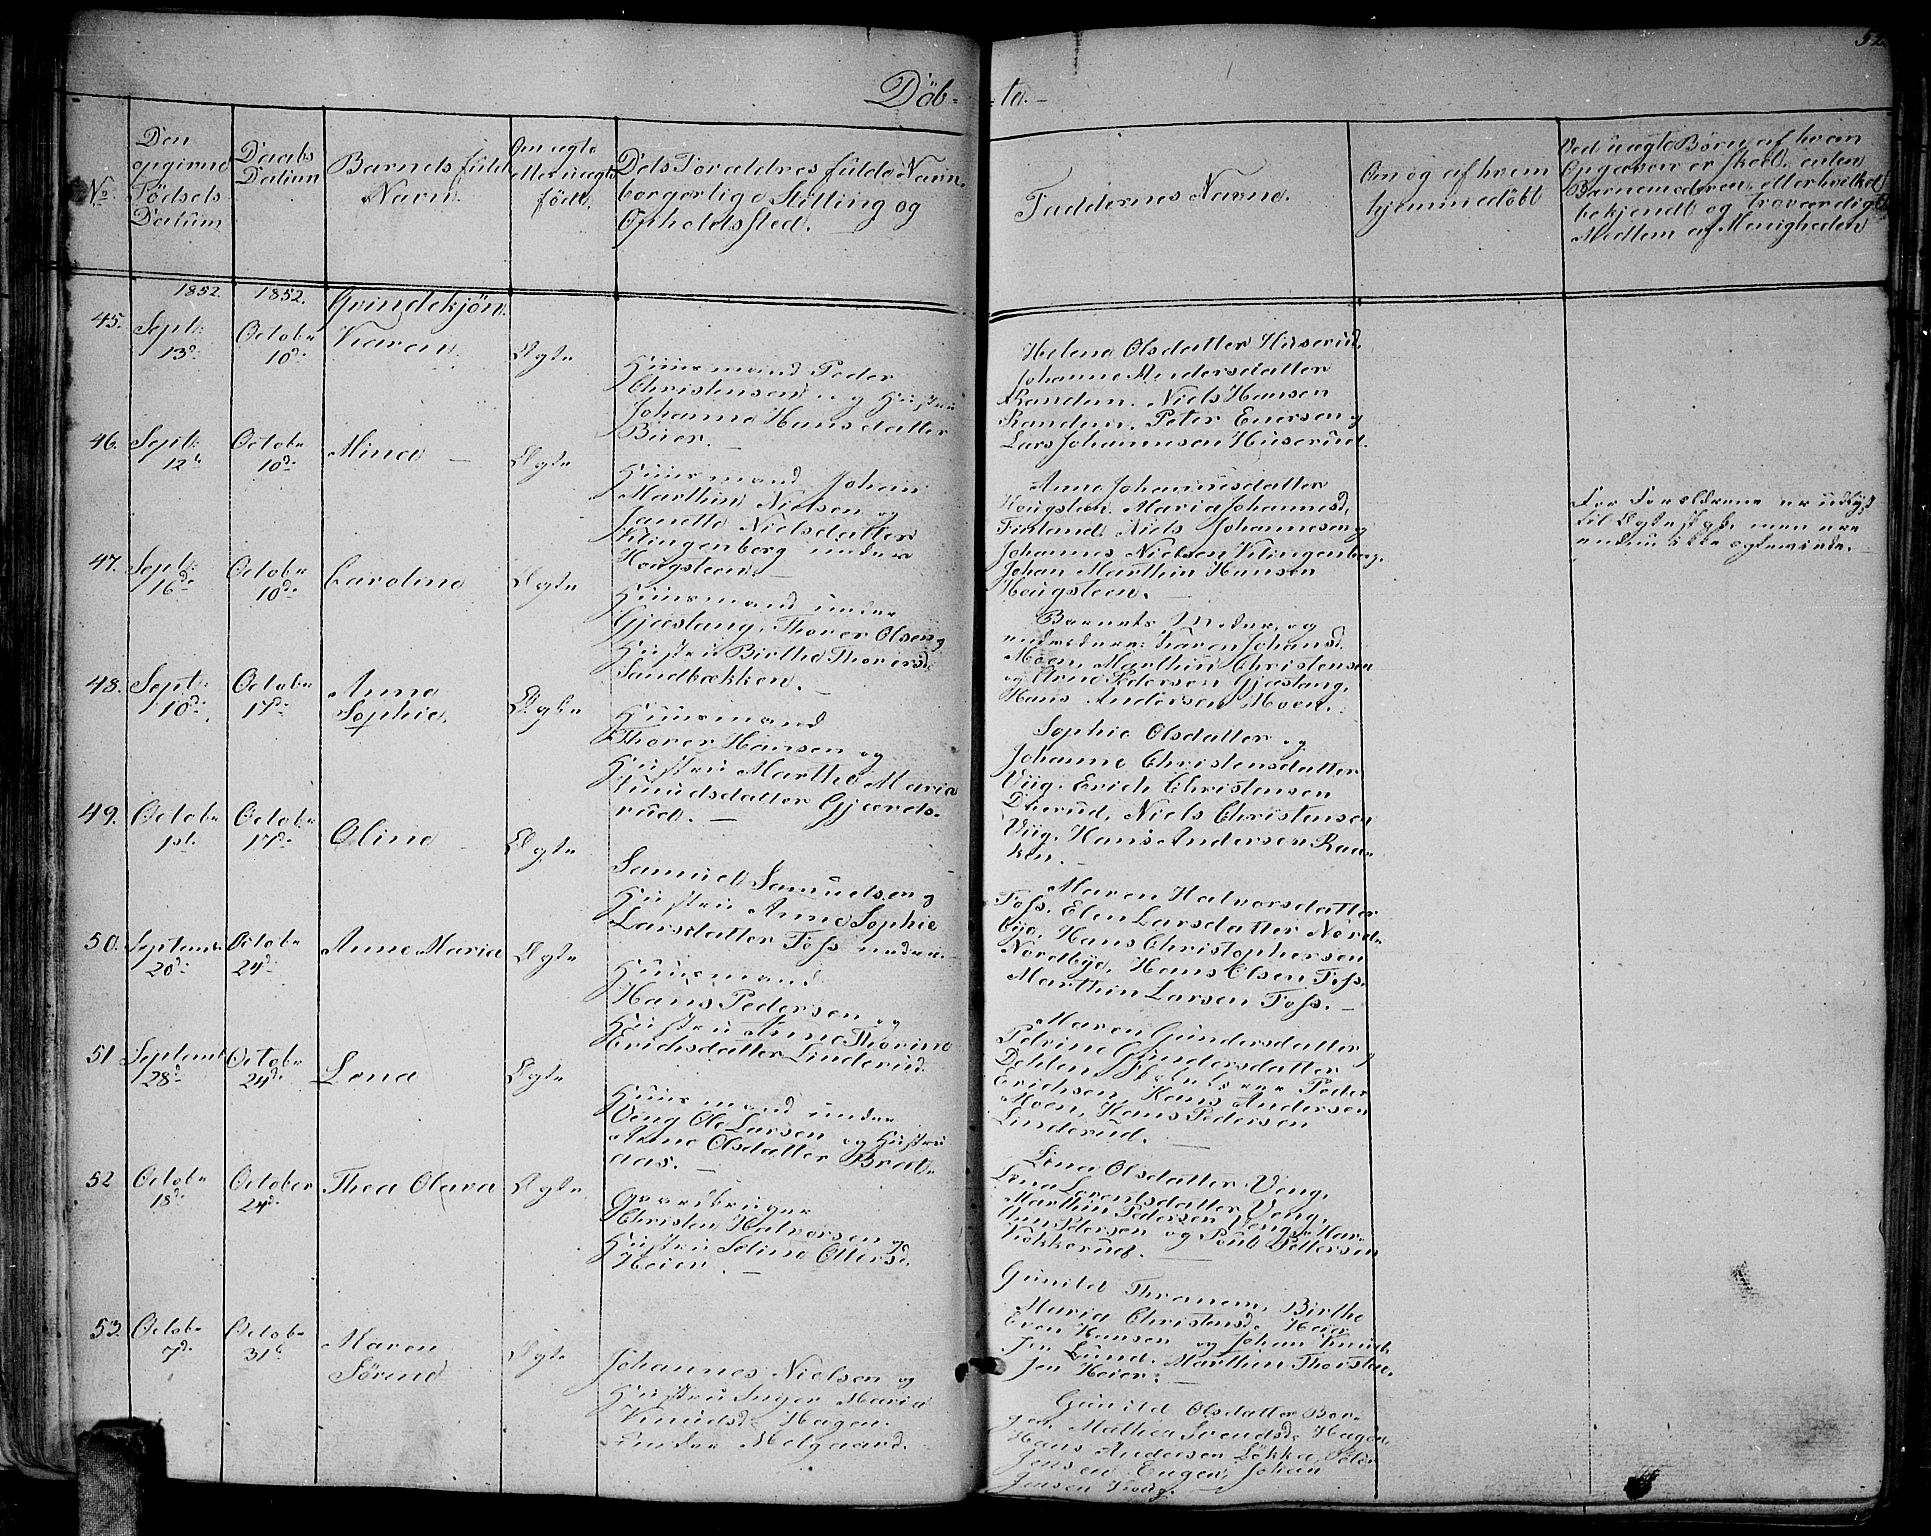 52.
Döb- te.-
No.
Den
opgivne
Födsels
Datum
Daabs
Datum
Barnets fulde
Navn
Om ægte
eller uægte
födt.
Dets Forældres fulde Navn
borgerlige Stilling og
Opholdssted.
Faddernes Navne.
Om og af hvem
hjemmedöbt
Ved uægte Børn af hvem
Opgaven er skeet, enten
Barnemoderen, eller hvilket
bekjendt og troværdigt
Medlem af Menigheden
1852. 1852. Qvindekjön.
45. Sept: 13de Octobr 10de Karen. Ægte
Huusmand Peder
Christensen og Hustru
Johanne Hansdatter
Buer.
Helene Olsdatter Huserud,
Johanne Andersdatter
Randem. Niels Hansen
Randem, Peter Enersen og
Lars Johannesen Huserud.
46. Sept: 12te Octobr 10de Mina Ægte
Huusmand Johan
Marthin Nielsen og
Janette Nielsdatter
Klingenberg under
Hougsteen.
Anne Johannesdatter
Hougsteen. Maria Johannesd.
Finland, Niels Johannesen og
Johannes Nielsen Klingenberg,
Johan Marthin Hansen
Hougsteen.
For Forældrene er udlyst
til Ægteskab, men ere
endnu ikke ægteviede.
47. Sept: 16de Octobr 10de Caroline Ægte
Huusmand under
Gjæslang, Thorer Olsen og
Hustru Birthe Thorersd.
Sandbækken.
Barnets Moder, og
Karen Johansd.
Moen, Marthin Christensen
og Arne Pedersen Gjæslang,
Hans Andersen Moen.
48. Sept: 10de Octobr 17de Anne
Sophie. Ægte
Huusmand
Thorer Hansen og
Hustru Marthe Maria
Knudsdatter Gjærds-
rud.
Sophie Olsdatter og
Johanne Christensdatter
Viig. Erich Christensen
Dherud, Niels Christensen
Viig. Hans Andersen Raa-
ken.
49. Octobr 1st. Octobr 17de Oline Ægte
Samuel Samuelsen og
Hustru Anne Sophie
Larsdatter Foss nedre.
Maren Halvorsdatter
Foss. Elen Larsdatter Nord-
bye, Hans Christophersen
Nordbye, Hans Olsen Foss.
Marthin Larsen Foss.
50. Septembr 20de Octobr 24de Anne Maria Ægte
Huusmand
Hans Pedersen og
Hustru Anne Thorine
Erichsdatter Linderud.
Maren Gundersdatter,
Petrine Gundersdatter
Dehlen, Peder
Erichsen, Hans Andersen
Moen, Hans Pedersen
Linderud.
51 Septembr 28de Octobr 24de Lena Ægte
Huusmand under
Veng Ole Larsen og Hustru
Anne Olsdatter Brat-
aas.
Lina Olsdatter Veng,
Lena Lorentsdatter Veng,
Marthin Pedersen Veng, Har-
Pedersen og Poul Pettersen
Kokkerud.
52 Octobr 18de October 24de Thea Olava Ægte
Gaardbruger
Christen Halvorsen og
Hustru Seline Ottersd.
Heier.
Gunild Thranem, Birthe
Maria Christensd. Heier
Even Hansen og Johan Knud-
sen Lund. Marthin Thorsten-
sen Heier.
53. Octobr 7de Octobr 31te Maren
Sörine Ægte
Johannes Nielsen og
Hustru Inger Maria
Knudsd. Hagen.
under Melgaard.
Gunild Olsdatter Ber-
ger, Mathea Svendsd. Hagen,
Hans Andersen Løkka, Peter
Jensen Eugen, Johan
Jensen Houg.